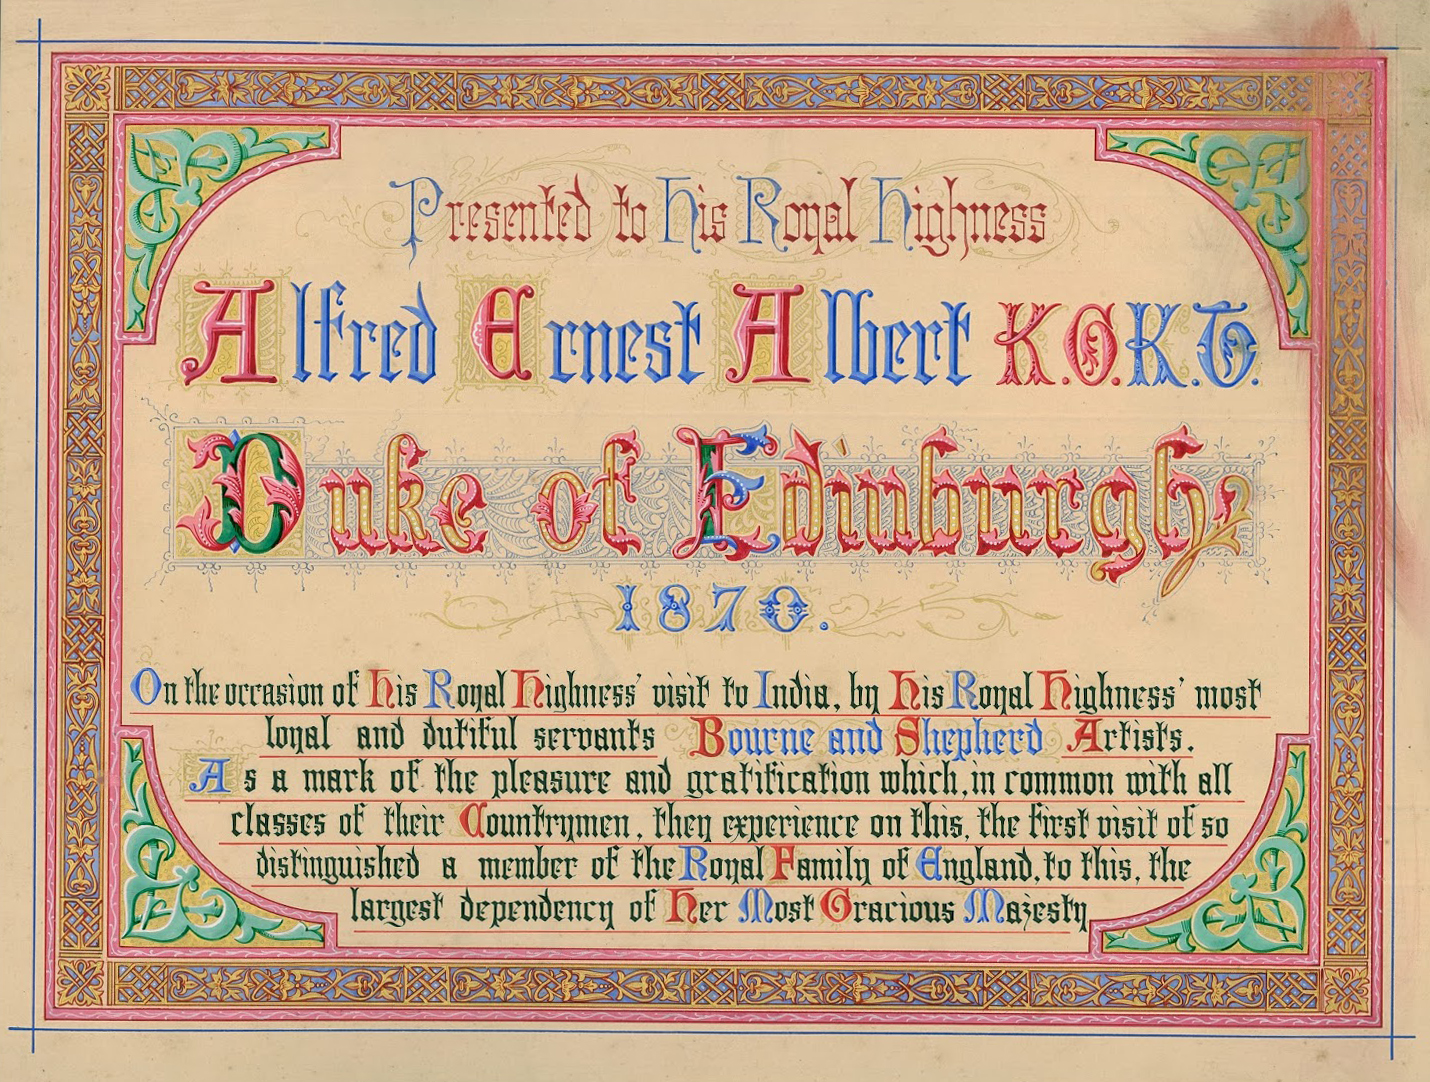 Presented to His Royal Highness
Alfred Ernest Albert K.G.K.T.
Duke of Edinburgh
1870.
On the occasion of His Royal Highness' visit to India, by His Royal Highness' most
loyal and dutiful servants Bourne and Shepherd Artists.
As a mark of the pleasure and gratification which, in common with all
classes of their Countrymen, they experience on this, the first visit of so
distinguished a member of the Royal Family of England, to this, the
largest dependency of Her Most Gracious Majesty